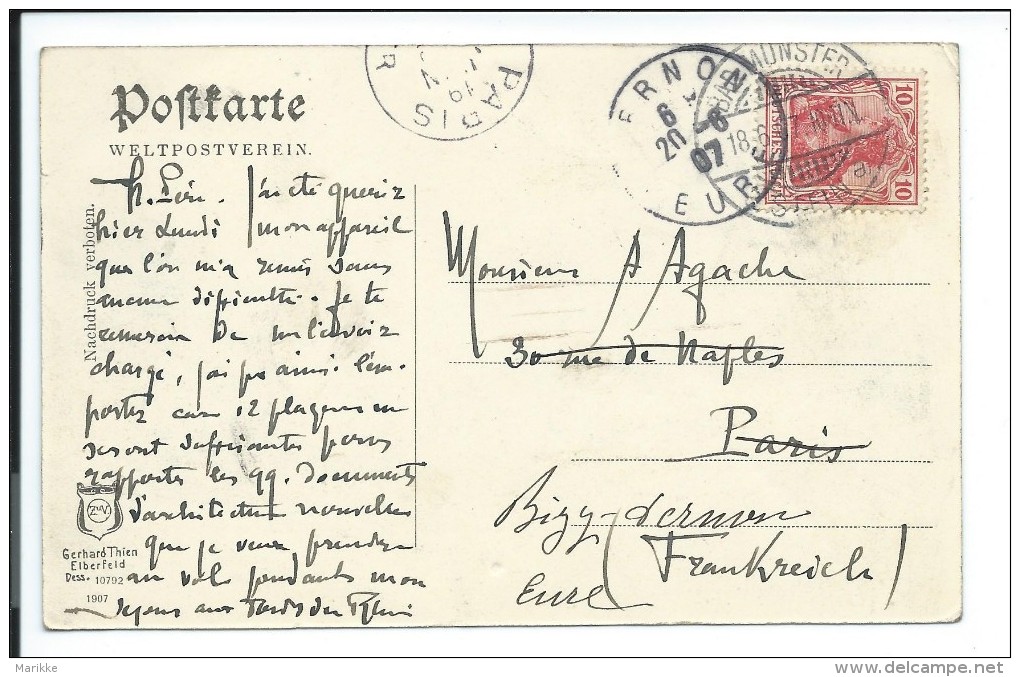 Postkarte
WELTPOSTVEREIN.
Nachdruck verboten.
PARIS
19
VERNON
EURE
6
20 -6
07
MÜNSTER
18.6.07
10
10
J'ai été quérir
hier Lundi mon appareil
que l'on m'a remis sans
aucune difficulté. Je te
remercie de me l'avoir
chargé, j'ai pu ainsi l'em-
porter car 12 plaques me
seront suffisantes pour
rapporter les qq. documents
d'architecture nouvelles
que je veux prendre
au vol pendant mon
séjour aux bords du Rhin
Monsieur A Agache
30 rue de Naples
Paris
Bizy-Vernon
(Frankreich)
Eure
Z&V
Gerhard Thien
Elberfeld
Dess. 10792
1907
Marikke
www.delcampe.net